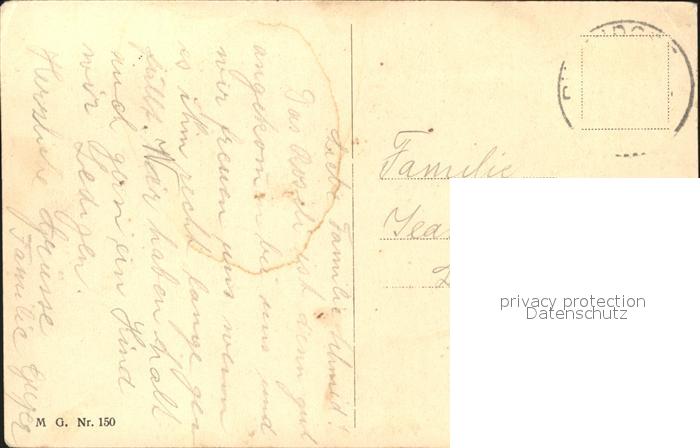 Liebe Familie Schmid!
Das Rösli ist denn gut
angekommen bei uns und
wir freuen uns wenn
es ihm recht lange ge
fällt. Wir haben halt
auch gern ein Kind
wir Ledigen.
Herzliche Grüsse
Familie
Familie
M G. Nr. 150
privacy protection
Datenschutz